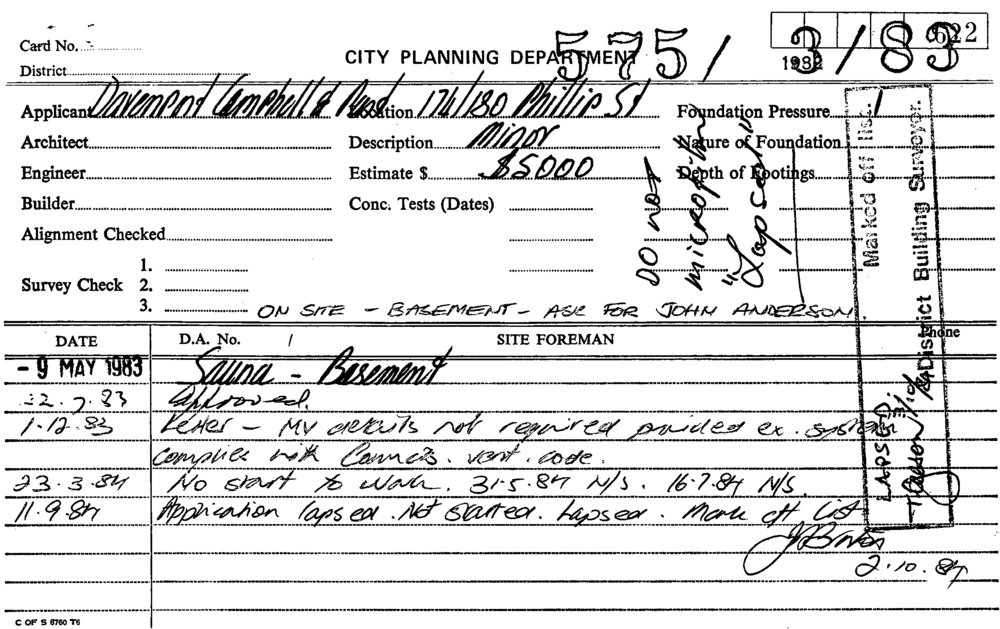 Card No.
575 / 3 / 83
622
1982
CITY PLANNING DEPARTMENT
District
Applicant Davenport Campbell & Location 174/180 Phillip St Foundation Pressure
Architect Description Minor Nature of Foundation
Engineer Estimate $ $5000 Depth of Footings
Builder Conc. Tests (Dates)
Alignment Checked
Do not
microfilm
"Lapsed"
Survey Check
1.
2.
3.
ON SITE - BASEMENT - ASK FOR JOHN ANDERSON
Marked off list.
LAPSED.
District Building Surveyor.
DATE D.A. No. / SITE FOREMAN Phone
- 9 MAY 1983 Sauna - Basement
22.7.83 Approved.
1.12.83 Letter - MV details not required provided ex. system
complies with Councils. vent. code.
23.3.84 No start to work. 31.5.84 N/S. 16.7.84 N/S.
11.9.84 Application lapsed. Not started. Lapsed. Mark off List
2.10.84
C OF S 6760 T6